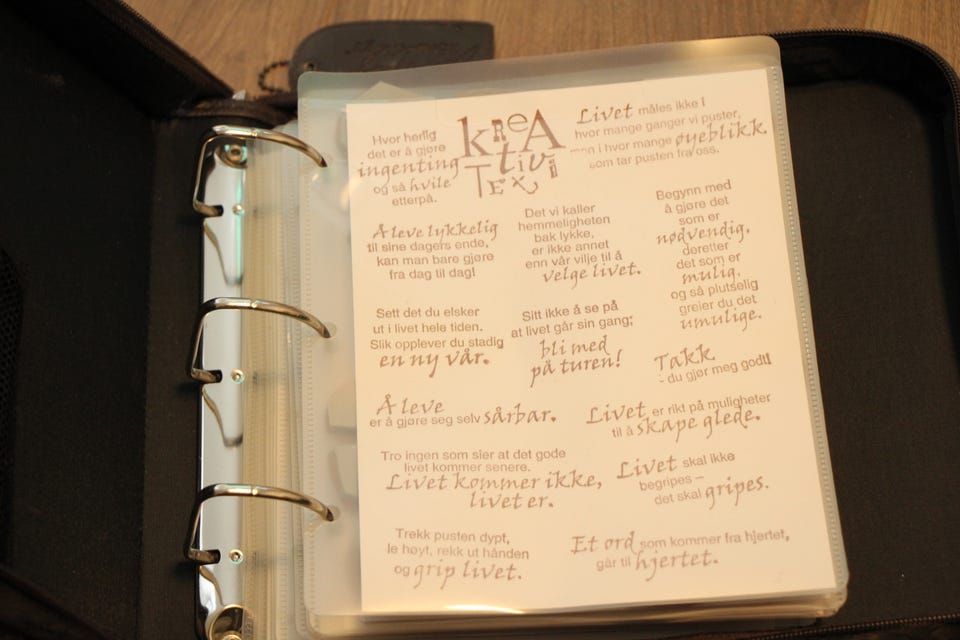 Hvor herlig
det er å gjøre
ingenting
og så hvile
etterpå.
kreA
tivi
Tex
Livet måles ikke i
hvor mange ganger vi puster,
men i hvor mange øyeblikk
som tar pusten fra oss.
Å leve lykkelig
til sine dagers ende,
kan man bare gjøre
fra dag til dag!
Det vi kaller
hemmeligheten
bak lykke,
er ikke annet
enn vår vilje til å
velge livet.
Begynn med
å gjøre det
som er
nødvendig,
deretter
det som er
mulig,
og så plutselig
greier du det
umulige.
Sett det du elsker
ut i livet hele tiden.
Slik opplever du stadig
en ny vår.
Sitt ikke å se på
at livet går sin gang;
bli med
på turen!
Takk
- du gjør meg god!!
Å leve
er å gjøre seg selv sårbar.
Livet er rikt på muligheter
til å skape glede.
Tro ingen som sier at det gode
livet kommer senere.
Livet kommer ikke,
livet er.
Livet skal ikke
begripes –
det skal gripes.
Trekk pusten dypt,
le høyt, rekk ut hånden
og grip livet.
Et ord som kommer fra hjertet,
går til hjertet.